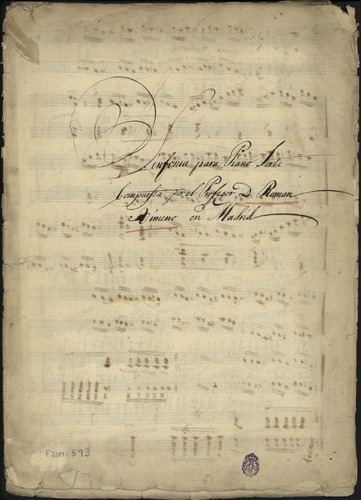 Sinfonia para Piano Forte
Compuesta por el Profesor D. Roman
Jimeno en Madrid
FJIM-593